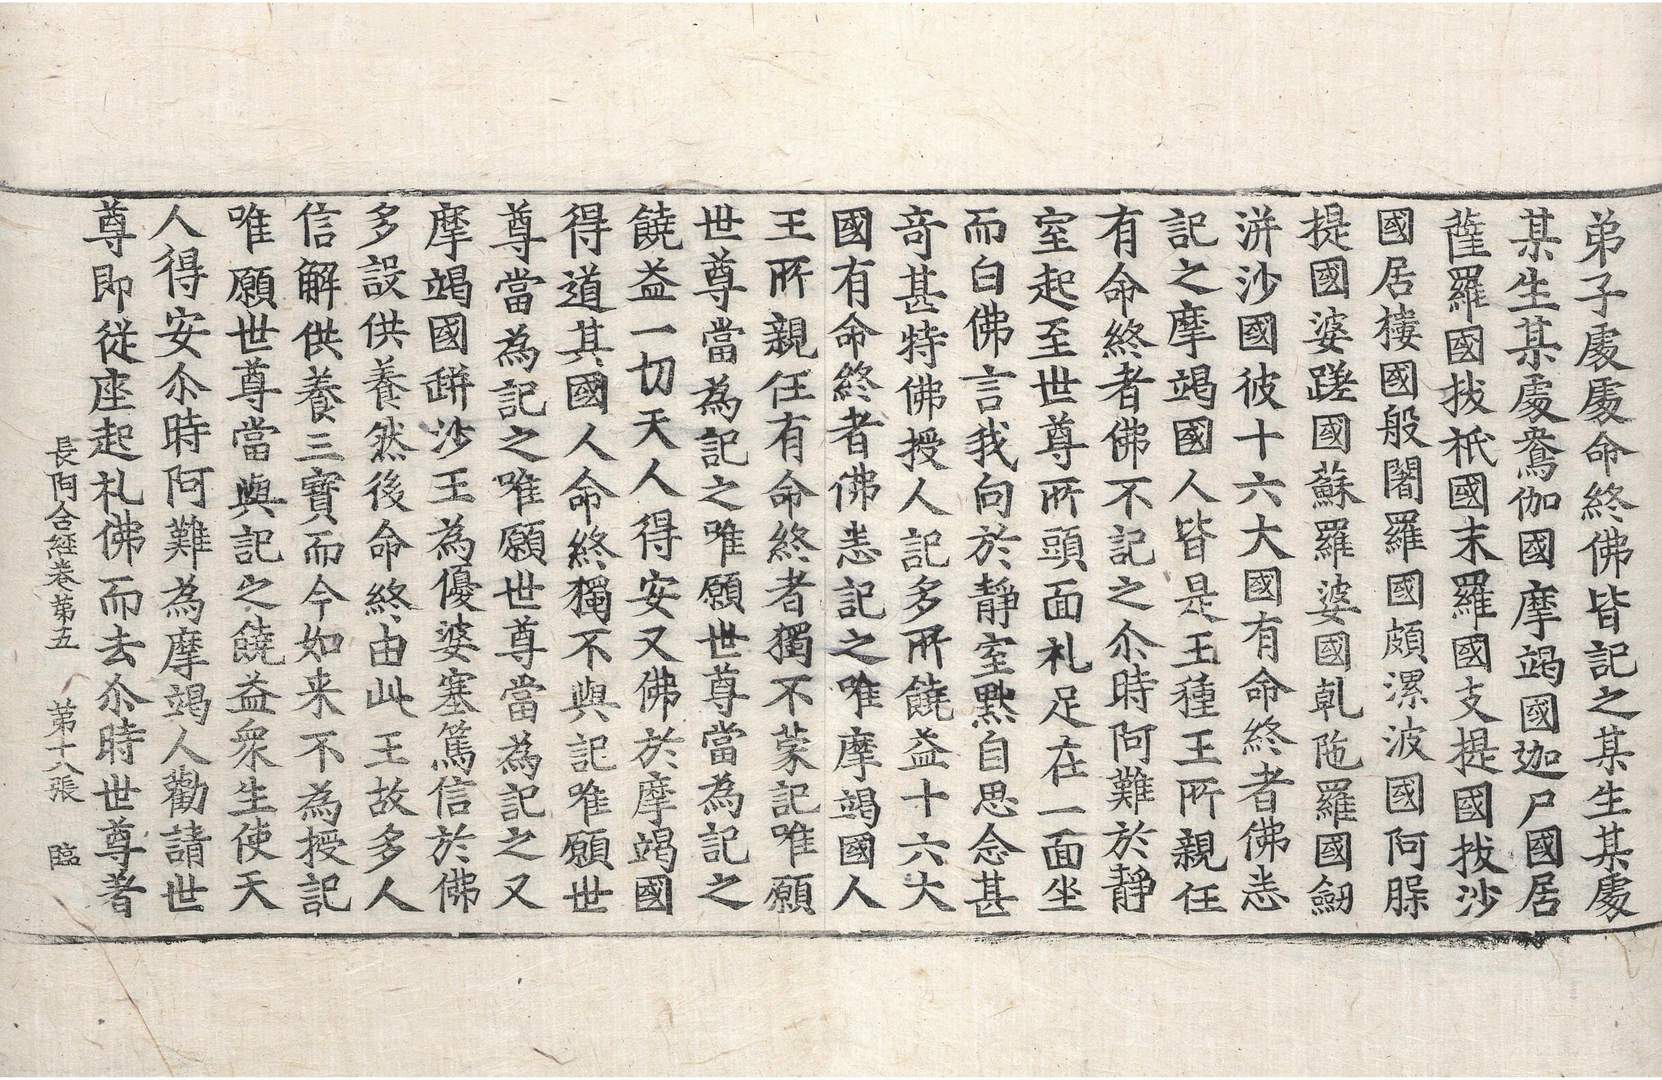 弟子處處命終佛皆記之某生某處
某生某處鴦伽國摩竭國迦尸國居
薩羅國拔祇國末羅國支提國拔沙
國居樓國般闍羅國頗漯波國阿般
提國婆蹉國蘇羅婆國乹陁羅國劒
洴沙國彼十六大國有命終者佛悉
記之摩竭國人皆是王種王所親任
有命終者佛不記之尒時阿難於靜
室起至世尊所頭面礼足在一面坐
而白佛言我向於靜室黙自思念甚
竒甚特佛授人記多所饒益十六大
國有命終者佛悉記之唯摩竭國人
王所親任有命終者獨不蒙記唯願
世尊當為記之唯願世尊當為記之
饒益一切天人得安又佛於摩竭國
得道其國人命終獨不與記唯願世
尊當為記之唯願世尊當為記之又
摩竭國缾沙王為優婆塞篤信於佛
多設供養然後命終由此王故多人
信解供養三寶而今如来不為授記
唯願世尊當與記之饒益衆生使天
人得安尒時阿難為摩竭人勸請世
尊即從座起礼佛而去尒時世尊著
長阿含經卷第五　第十八張　臨